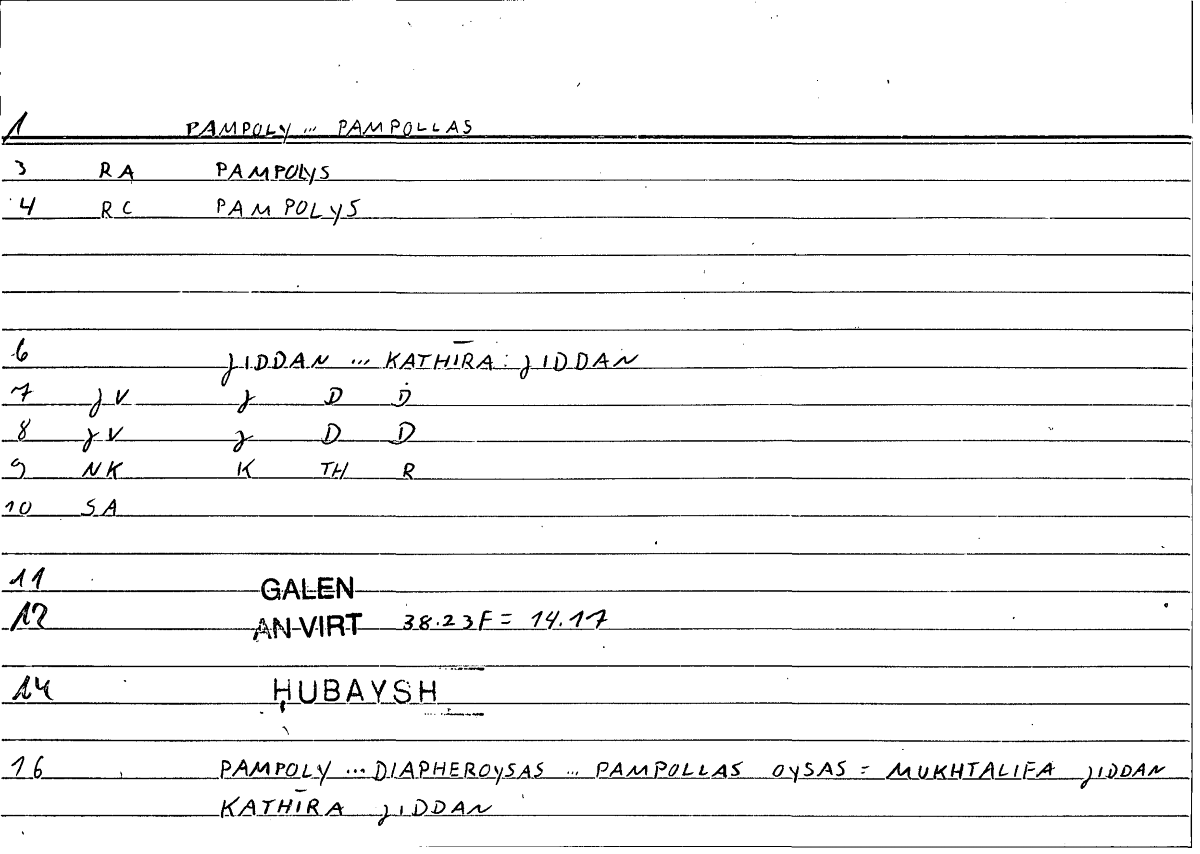 1 PAMPOLY ... PAMPOLLAS
3 RA PAMPOLYS
4 RC PAMPOLYS
6 JIDDAN ... KATHĪRA JIDDAN
7 JV J D D
8 JV J D D
9 NK K TH R
10 SA
11 GALEN
12 AN VIRT 38.23F = 14.17
14 ḤUBAYSH
16 PAMPOLY ... DIAPHEROYSAS ... PAMPOLLAS OYSAS = MUKHTALIFA JIDDAN
KATHĪRA JIDDAN